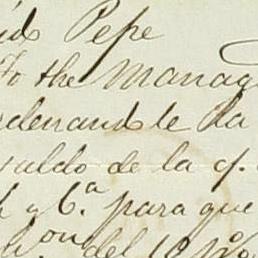 Pepe
To the Manag
denandole la
saldo de la q.
y C.ª para que
del 18